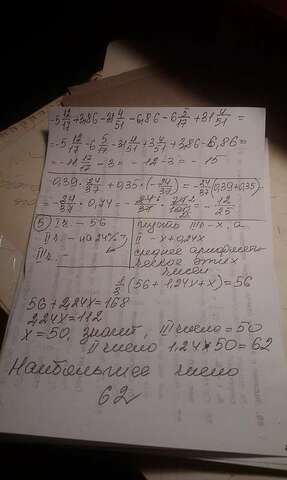 -5 12/17 + 3,86 - 31 4/51 - 6,86 - 6 5/17 + 31 4/51 =
= -5 12/17 - 6 5/17 - 31 4/51 + 31 4/51 + 3,86 - 6,86 =
= -11 17/17 - 3 = -12 - 3 = -15
-0,39 · 24/37 + 0,35 · (-24/37) = -24/37 (0,39 + 0,35)
= -24/37 · 0,74 = = -12/25
5) I ч. - 56
II ч. - на 24% >
III ч. -
пусть III ч - x, а
II - x + 0,24x
среднее арифмети-
ческое этих
чисел
1/3 (56 + 1,24x + x) = 56
56 + 2,24x = 168
2,24x = 112
x = 50, значит, III число = 50
II число 1,24 * 50 = 62
Наибольшее число
62